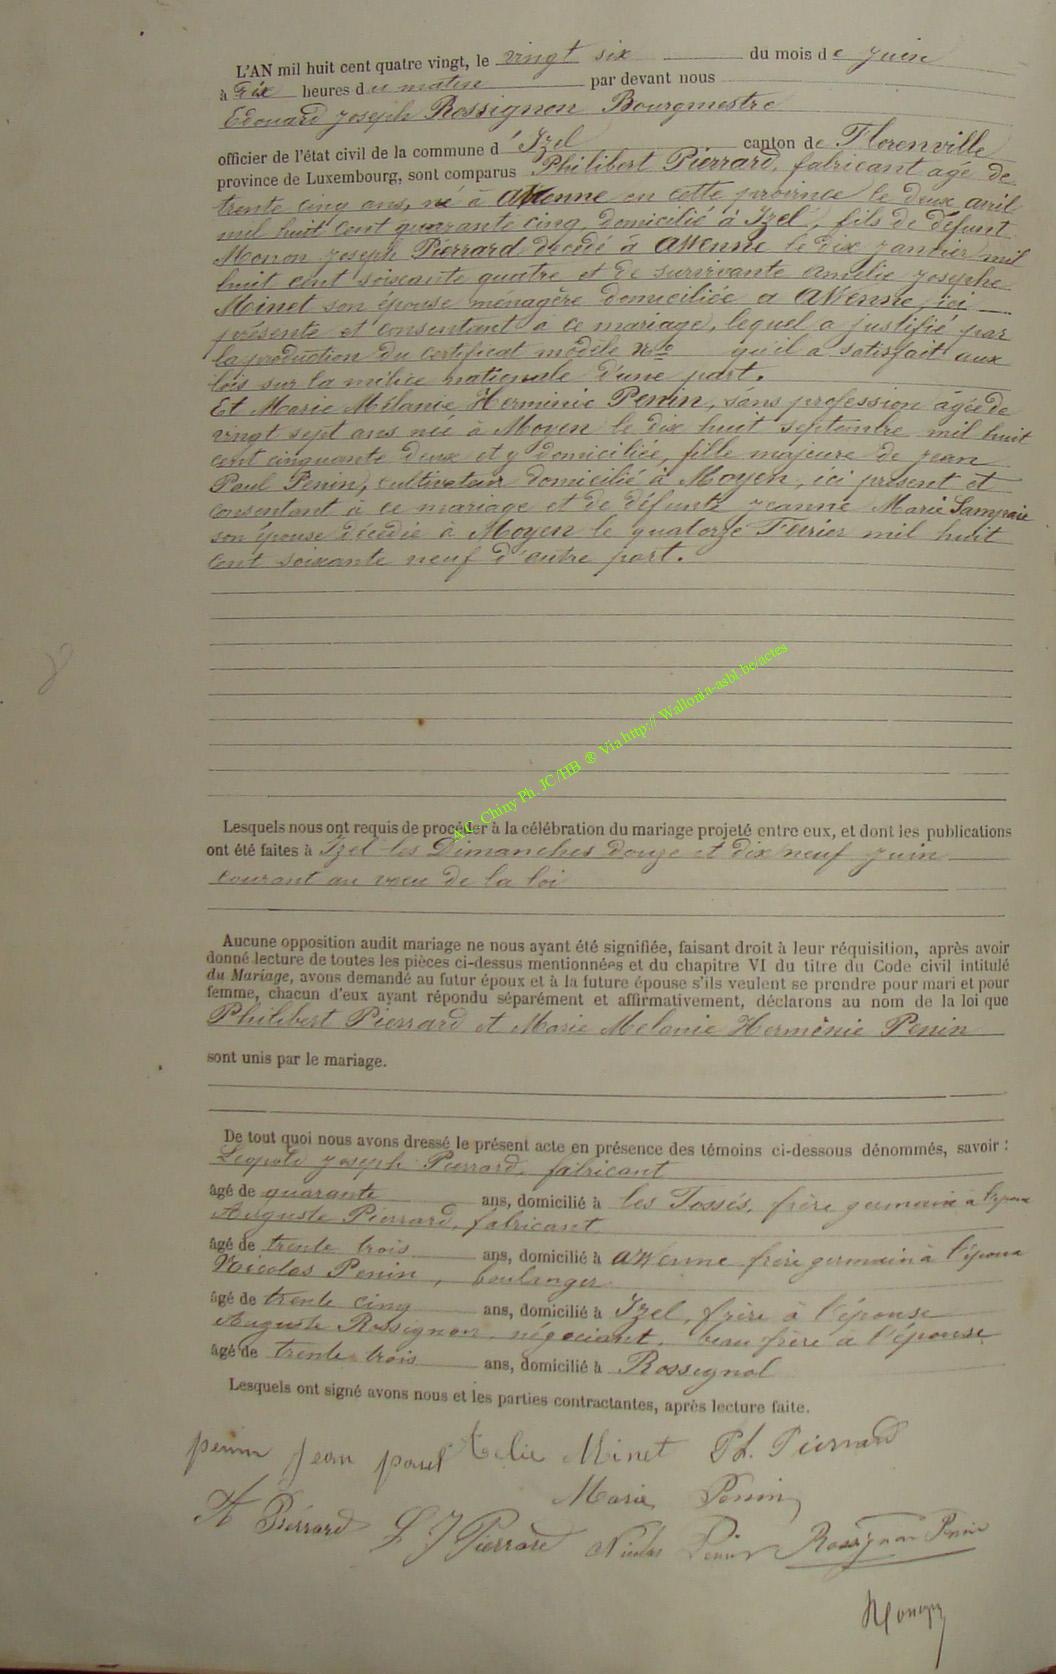 L'AN mil huit cent quatre vingt, le vingt six du mois de Juin
à dix heures du matin par devant nous
Edouard Joseph Rossignon Bourgmestre
officier de l'état civil de la commune d'Izel canton de Florenville
province de Luxembourg, sont comparus Philibert Pierrard, fabricant agé de
trente cinq ans, né à Awenne en cette province le deux avril
mil huit cent quarante cinq, domicilié à Izel, fils de défunt
Joseph Pierrard décédé à Awenne le dix janvier mil
huit cent soixante quatre et de survivante Amélie Josephe
Minet son épouse ménagère domiciliée à Awenne, ici
présente et consentant à ce mariage, lequel a justifié par
la production du certificat modèle qu'il a satisfait aux
lois sur la milice nationale d'une part.
Et Marie Mélanie Herminie Penin, sans profession âgée de
vingt sept ans née à Moyen le dix huit septembre mil huit
cent cinquante deux et y domiciliée, fille majeure de Jean
Paul Penin, cultivateur domicilié à Moyen, ici présent et
consentant à ce mariage et de défunte Jeanne Marie
son épouse décédée à Moyen le quatorze Février mil huit
cent soixante neuf d'autre part.
A.C. Chiny Ph. JC/HB ® Via http:// Wallonia-asbl.be/actes
Lesquels nous ont requis de procéder à la célébration du mariage projeté entre eux, et dont les publications
ont été faites à Izel les Dimanches douze et dix neuf Juin
courant au vœu de la loi
Aucune opposition audit mariage ne nous ayant été signifiée, faisant droit à leur réquisition, après avoir
donné lecture de toutes les pièces ci-dessus mentionnées et du chapitre VI du titre du Code civil intitulé
du Mariage, avons demandé au futur époux et à la future épouse s'ils veulent se prendre pour mari et pour
femme, chacun d'eux ayant répondu séparément et affirmativement, déclarons au nom de la loi que
Philibert Pierrard et Marie Melanie Herminie Penin
sont unis par le mariage.
De tout quoi nous avons dressé le présent acte en présence des témoins ci-dessous dénommés, savoir :
Léopold Joseph Pierrard, fabricant
âgé de quarante ans, domicilié à les Fossés, frère germain à l'époux
Auguste Pierrard, fabricant
âgé de trente trois ans, domicilié à Awenne frère germain à l'époux
Nicolas Penin, boulanger
âgé de trente cinq ans, domicilié à Izel, frère à l'épouse
Auguste Rossignon, négociant, beau frère a l'épouse
âgé de trente trois ans, domicilié à Rossignol
Lesquels ont signé avons nous et les parties contractantes, après lecture faite.
penin Jean paul Minet Ph. Pierrard
Marie Penin
A Pierrard L J Pierrard Nicolas Penin Rossignon Penin